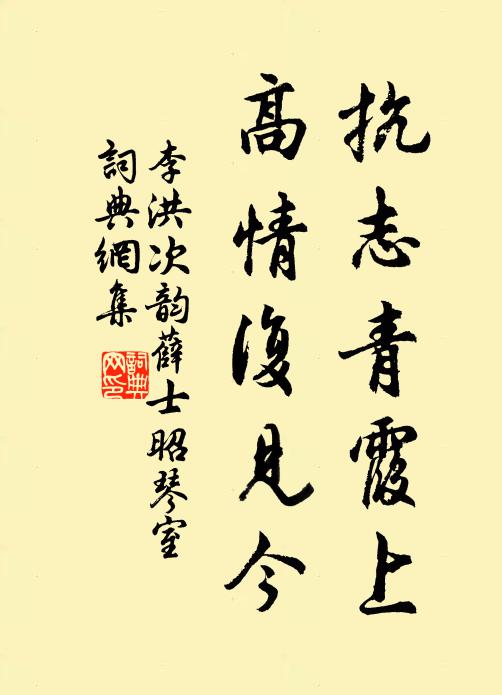 抗志青霞上
高情復見今
李洪次韵薛士昭琴室
詞典網集
詞典網印